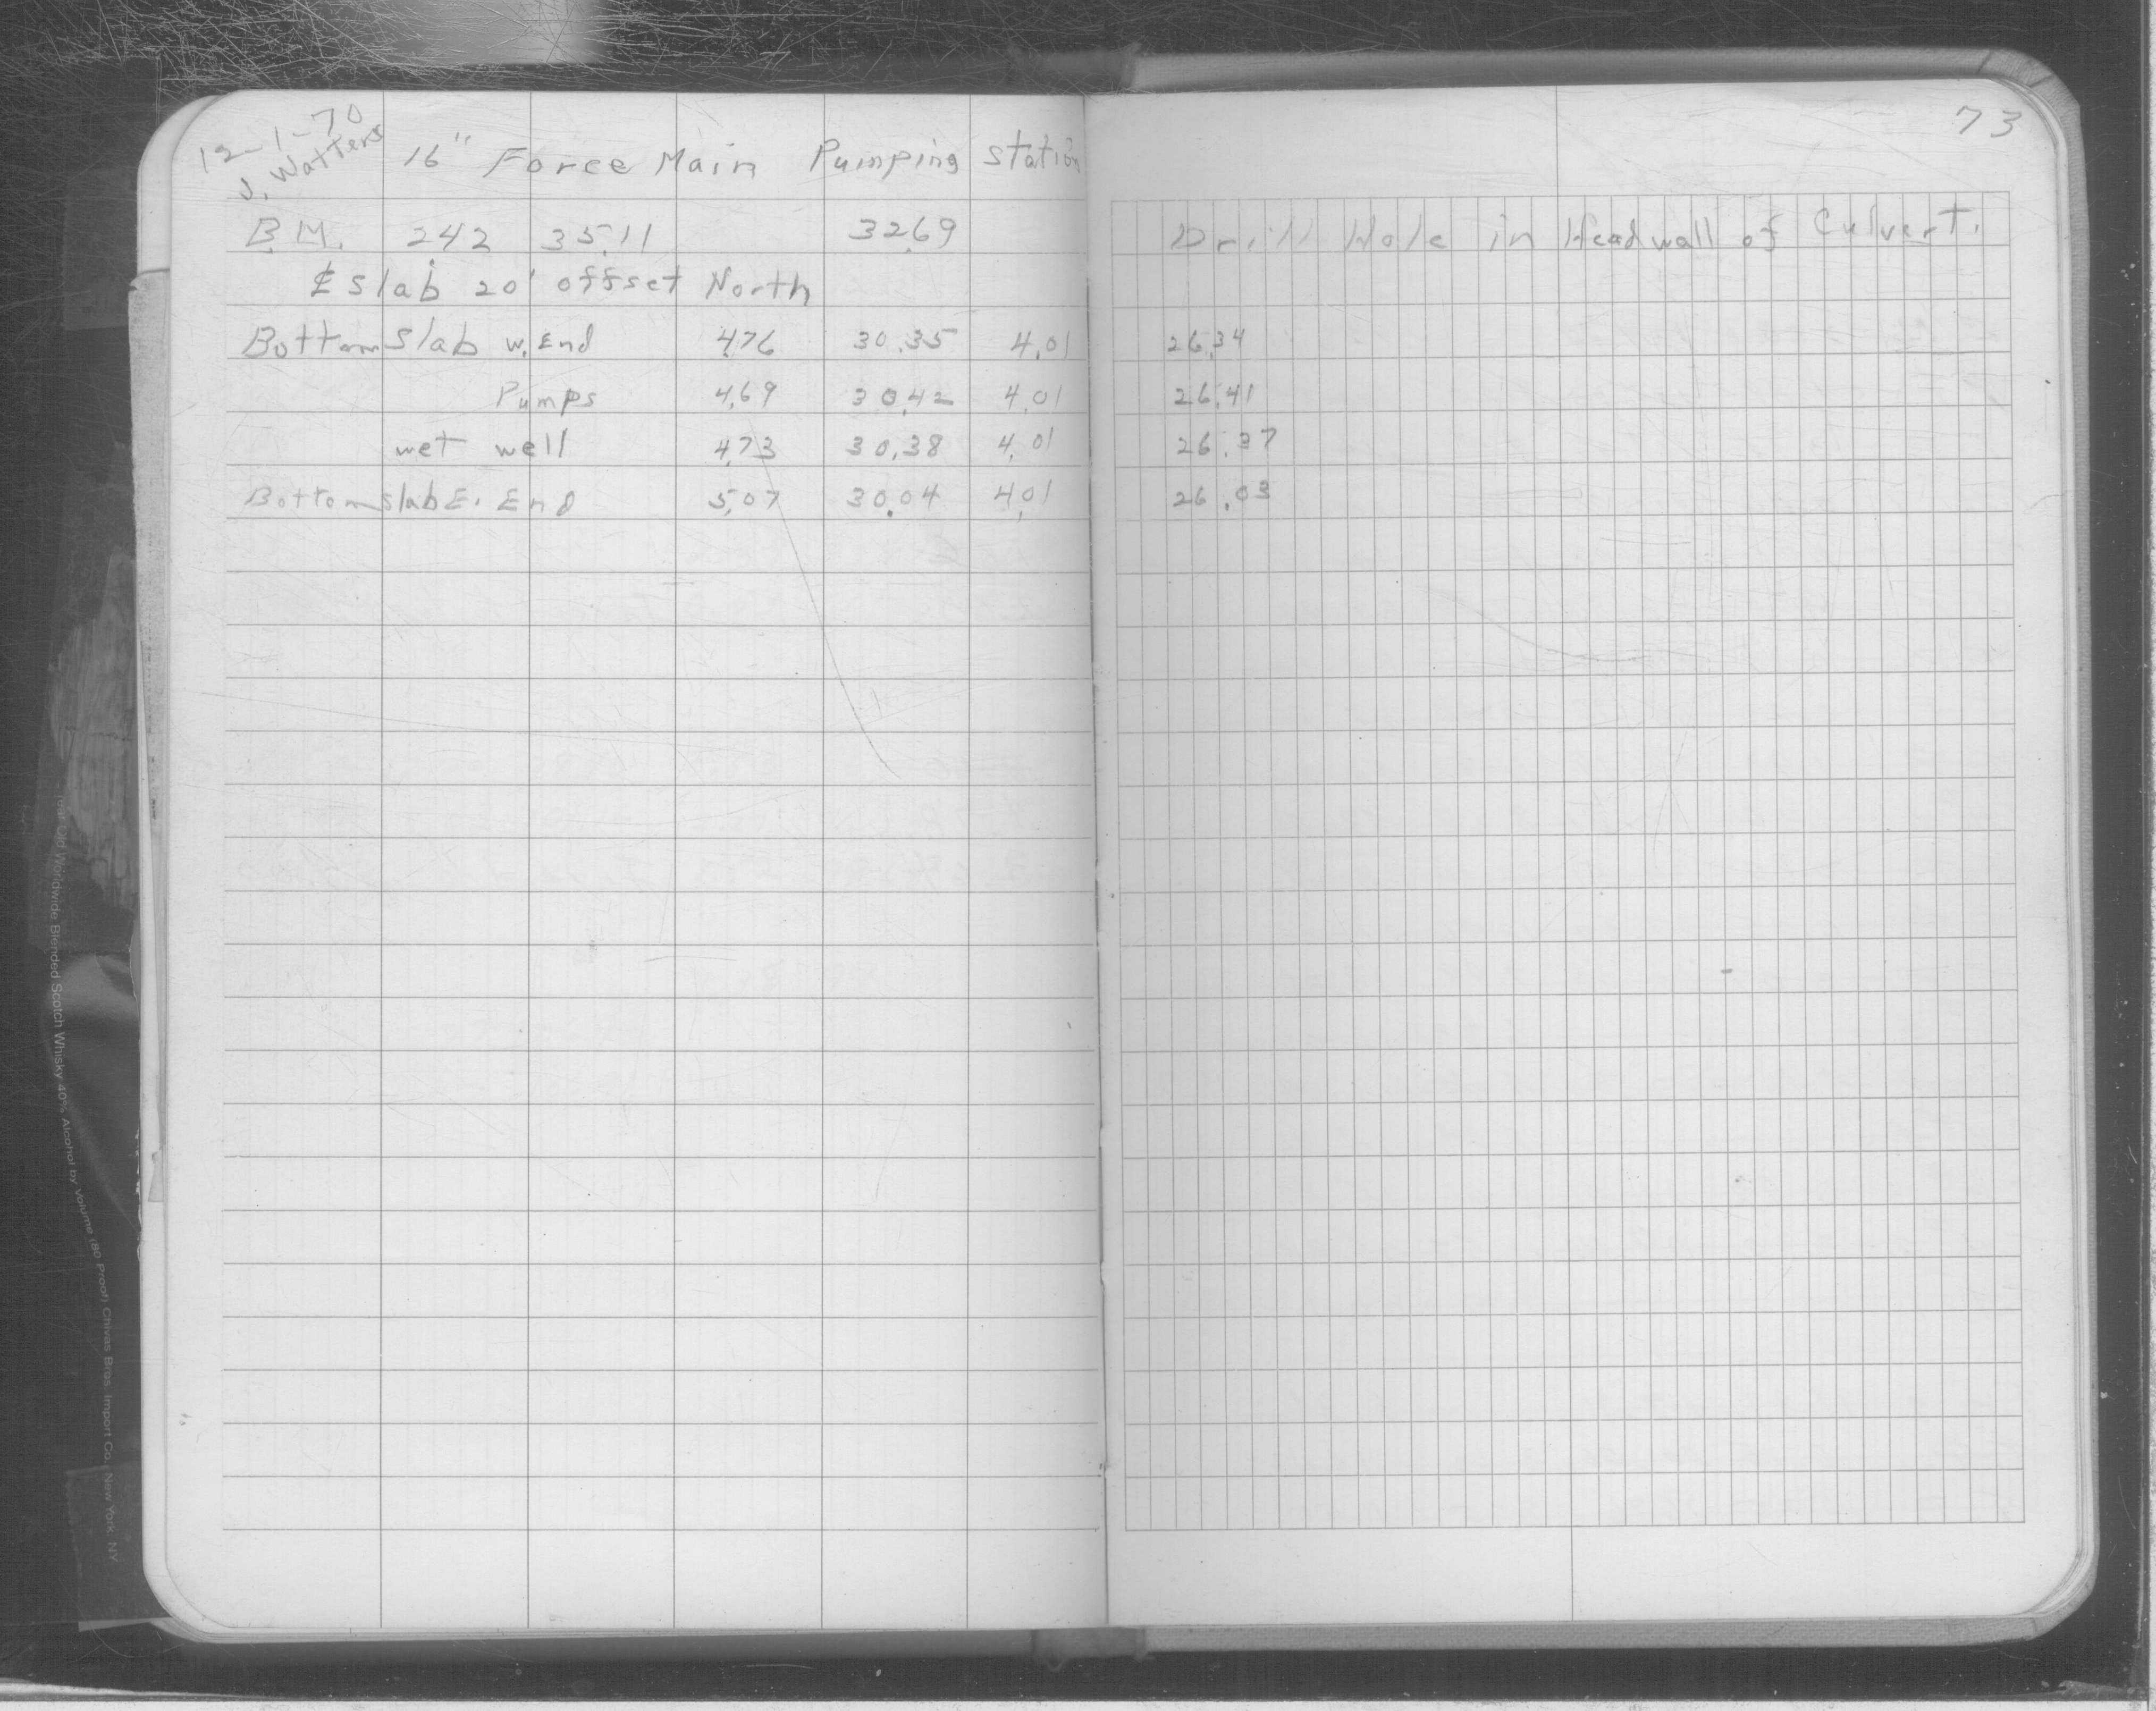 12-1-70
J. Watters
16" Force Main Pumping Station
B.M. 242 35.11 32.69
℄ slab 20' offset North
Bottom Slab W. End 4.76 30.35 4.01
Pumps 4.69 30.42 4.01
wet well 4.73 30.38 4.01
Bottom slab E. End 5.07 30.04 4.01
73
Drill Hole in Headwall of Culvert.
26.34
26.41
26.37
26.03
Year Old Worldwide Blended Scotch Whisky 40% Alcohol by Volume (80 Proof) Chivas Bros. Import Co., New York, NY